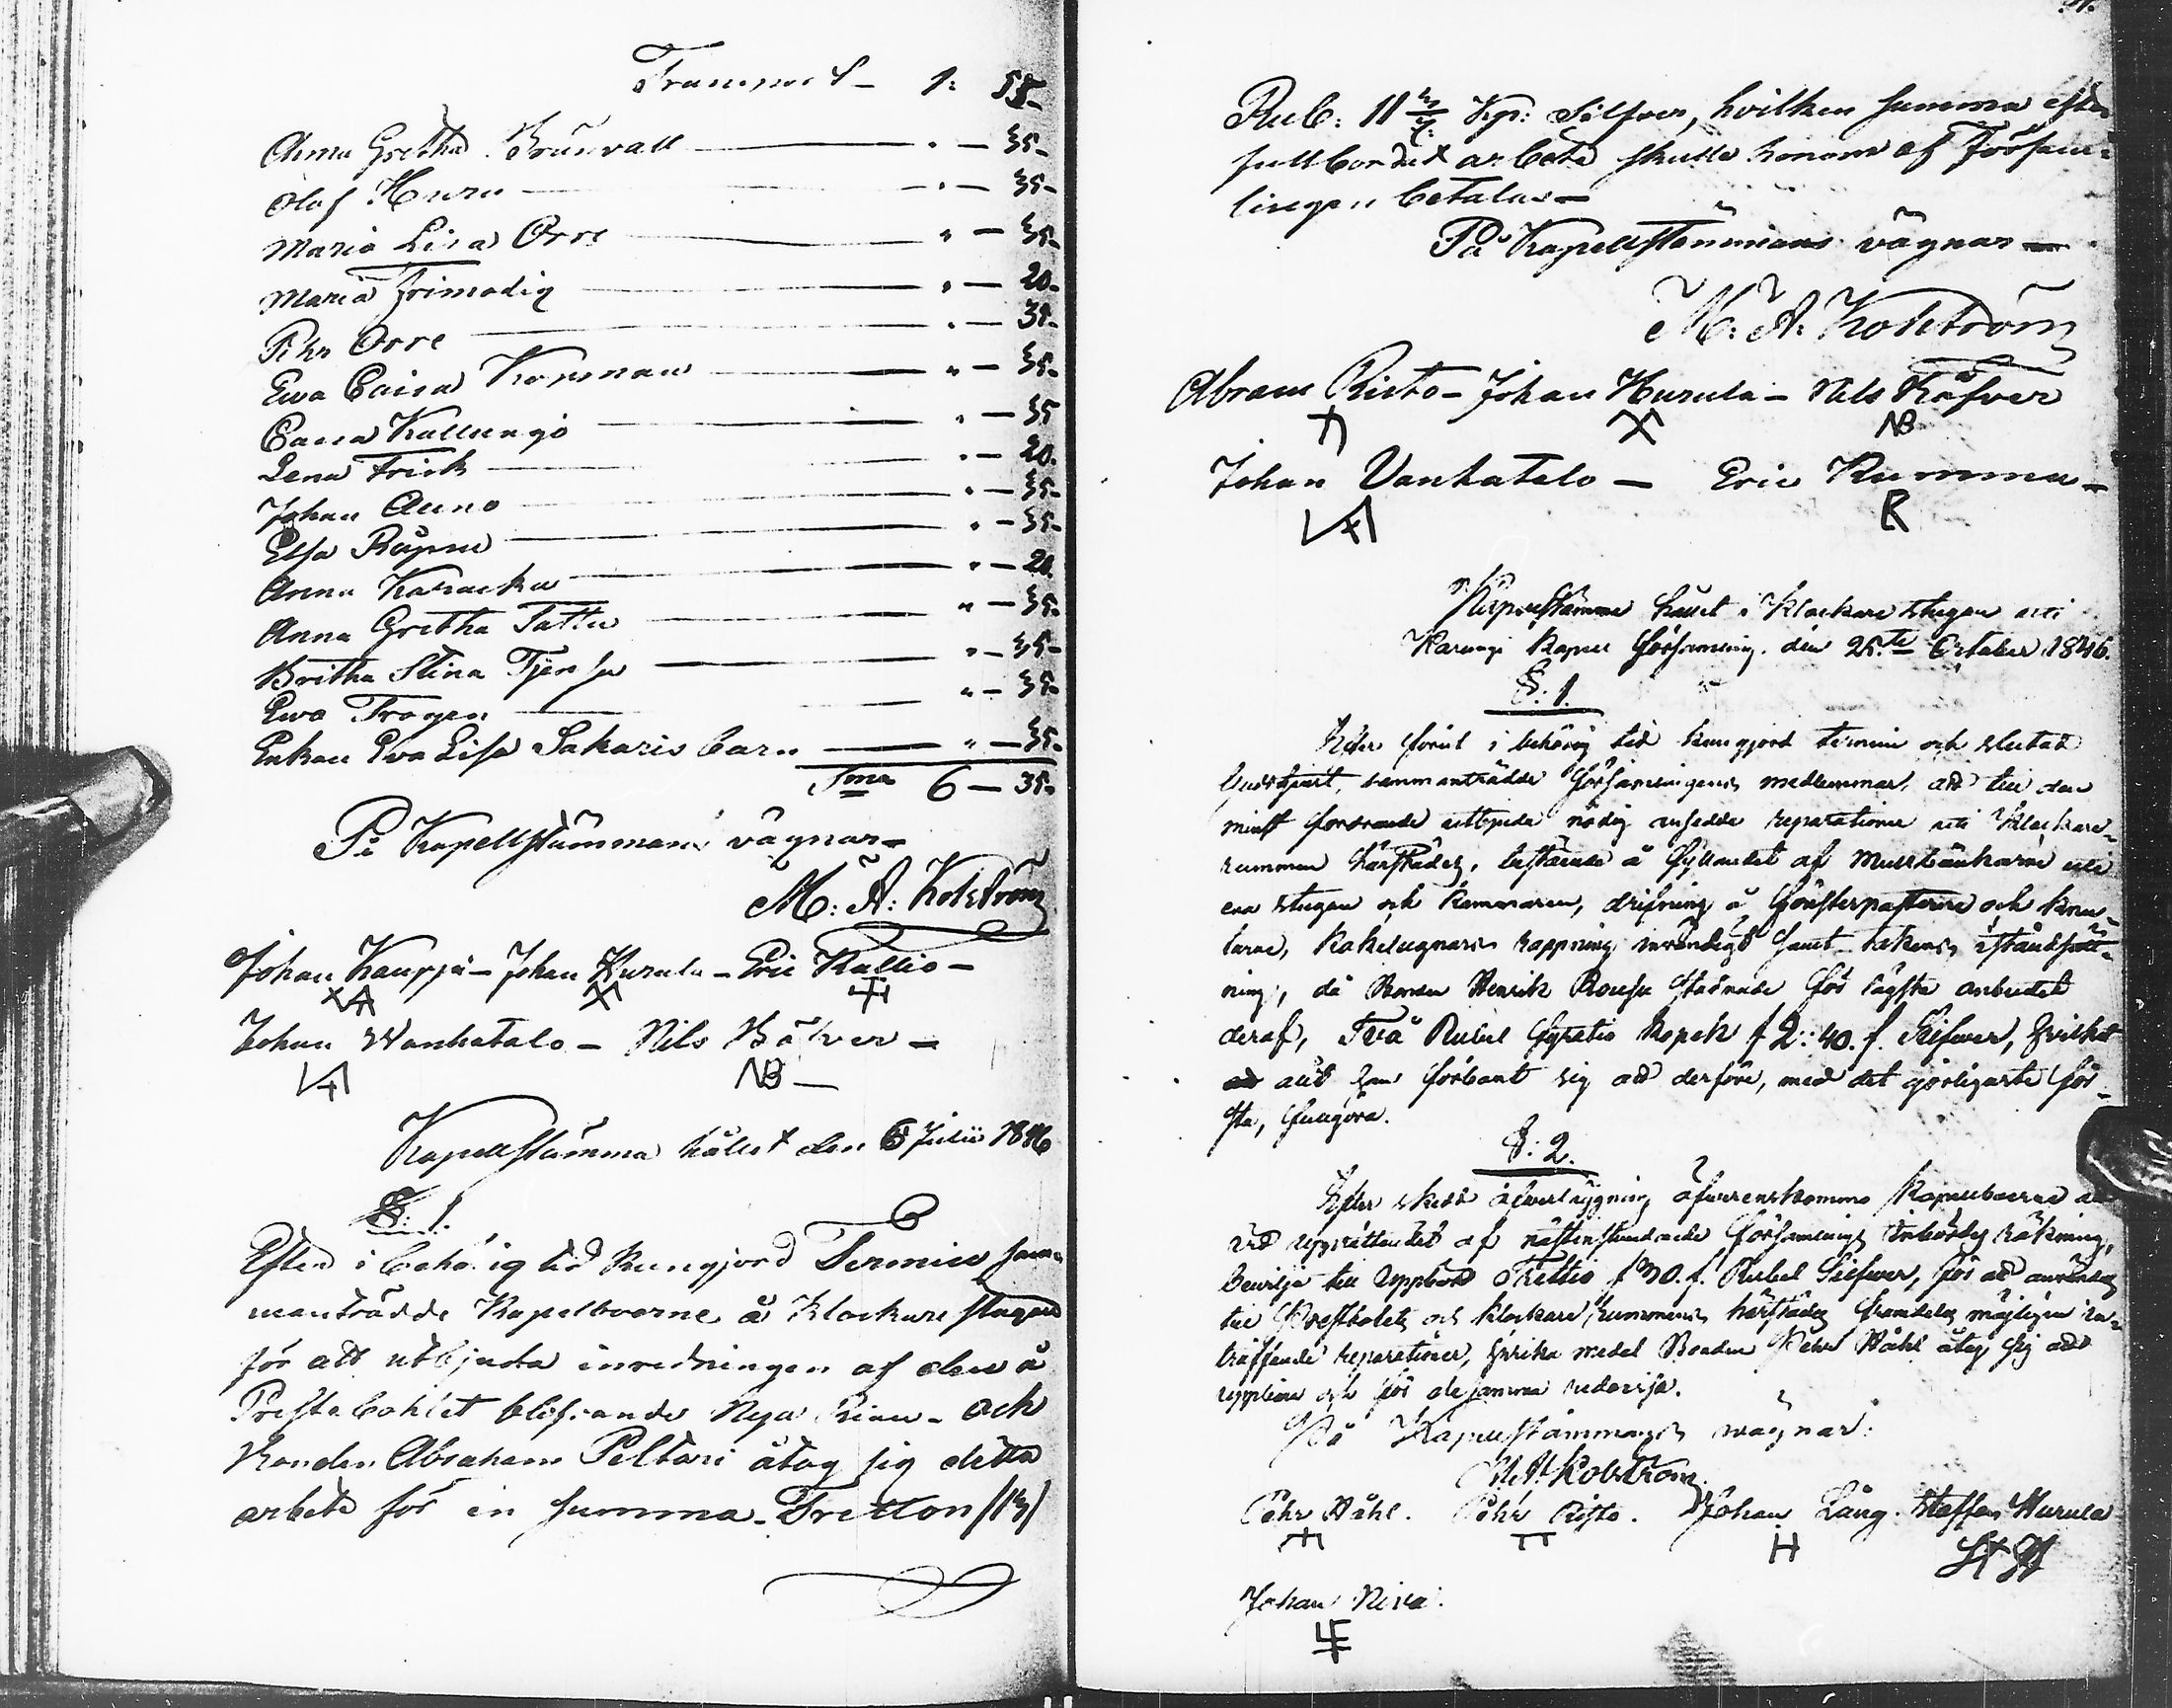 Transport — 1: 55.
Anna Gretha Brännvall — " — 35.
Olof Huru — " — 35.
Maria Lisa Orre — " — 35.
Maria Frimodig — " — 20.
Pehr Orre — " — 35.
Ewa Caisa Korpman — " — 35.
Caisa Kallungi — " — 35
Lena Frisk — " — 20.
Johan Auno — " — 35.
Elsa — " — 35.
Anna — " — 20.
Anna Gretha Tattu — " — 35.
Britha Stina — " — 35.
Ewa Trogen — " — 35.
Enkan Eva Lisa Sakaris barn — " — 35.
Sma 6 — 35.
På Kapellstämmans vägnar —
M: A: Kolström
Johan Kauppi — Johan Hurula — Eric Kallio —
Johan Wanhatalo — Nils Båfver —
NB —
Kapellstämma hållet den 5 Julii 1846
§: 1.
Efter i behörig tid kungjord Termin sam-
manträdde Kapelboerne å Klockare stugan
för att utbjuda inredningen af den å
Prestabohlet blifvande Nya Rian — och
Bonden Abraham Peltari åtog sig detta
arbete för en summa Tretton /13/
Rub: 11 3/7 Kop: Silfver, hvilken summa efter
fullbordat arbete skulle honom af Försam-
lingen betalas —
På Kapellstämmans vägnar —
M: A: Kolström
Abram Risto — Johan Hurula — Nils Båfver
NB
Johan Vanhatalo — Eric Rumma —
R
Kapellstämma hållet i Klockare stugan uti
Karungi Kapell församling den 25te October 1846.
§: 1.
Efter förut i behörig tid kungjord termin och slutad
Gudstjenst, sammanträdde församlingens medlemmar, att till den
minst fordrande utbjuda nödig ansedde reparationer uti Klockare-
rummen härstädes, bestående å fyllandet af mullbänkarne uti
ena stugan och kammaren, drifning å fönsterposterna och knu-
tarne, Kakelugnars rappning invändigt samt takens iståndsätt-
ning, då Bonden Henrik Rousu stadnade för lägsta anbudet
deraf, Två Rubel fyratio kopek f 2: 40. f. Silfwer, hvilket
allt han förbant sig att derföre, med det görligaste för-
sta, fullgöra.
§: 2.
Efter skedd öfwerläggning öfwerenskommo kapellboerne att
vid upprättandet af nästinstundande församlings inbördes räkning,
bewilja till uppbörd Trettio f 30. f. Rubel Silfwer, för att användas
till Prestbolets och klockare rummens härstädes framdeles möjligen in-
träffande reparationer, hvilka medel Bonden Pehr Ståhl åtog sig att
uppbära och för desamma redovisa.
På Kapellstämmans wägnar:
M. A. Kolström
Pehr Ståhl. Pehr Risto. Johan Lång. Staffan Hurula
H St H
Johan Niva.